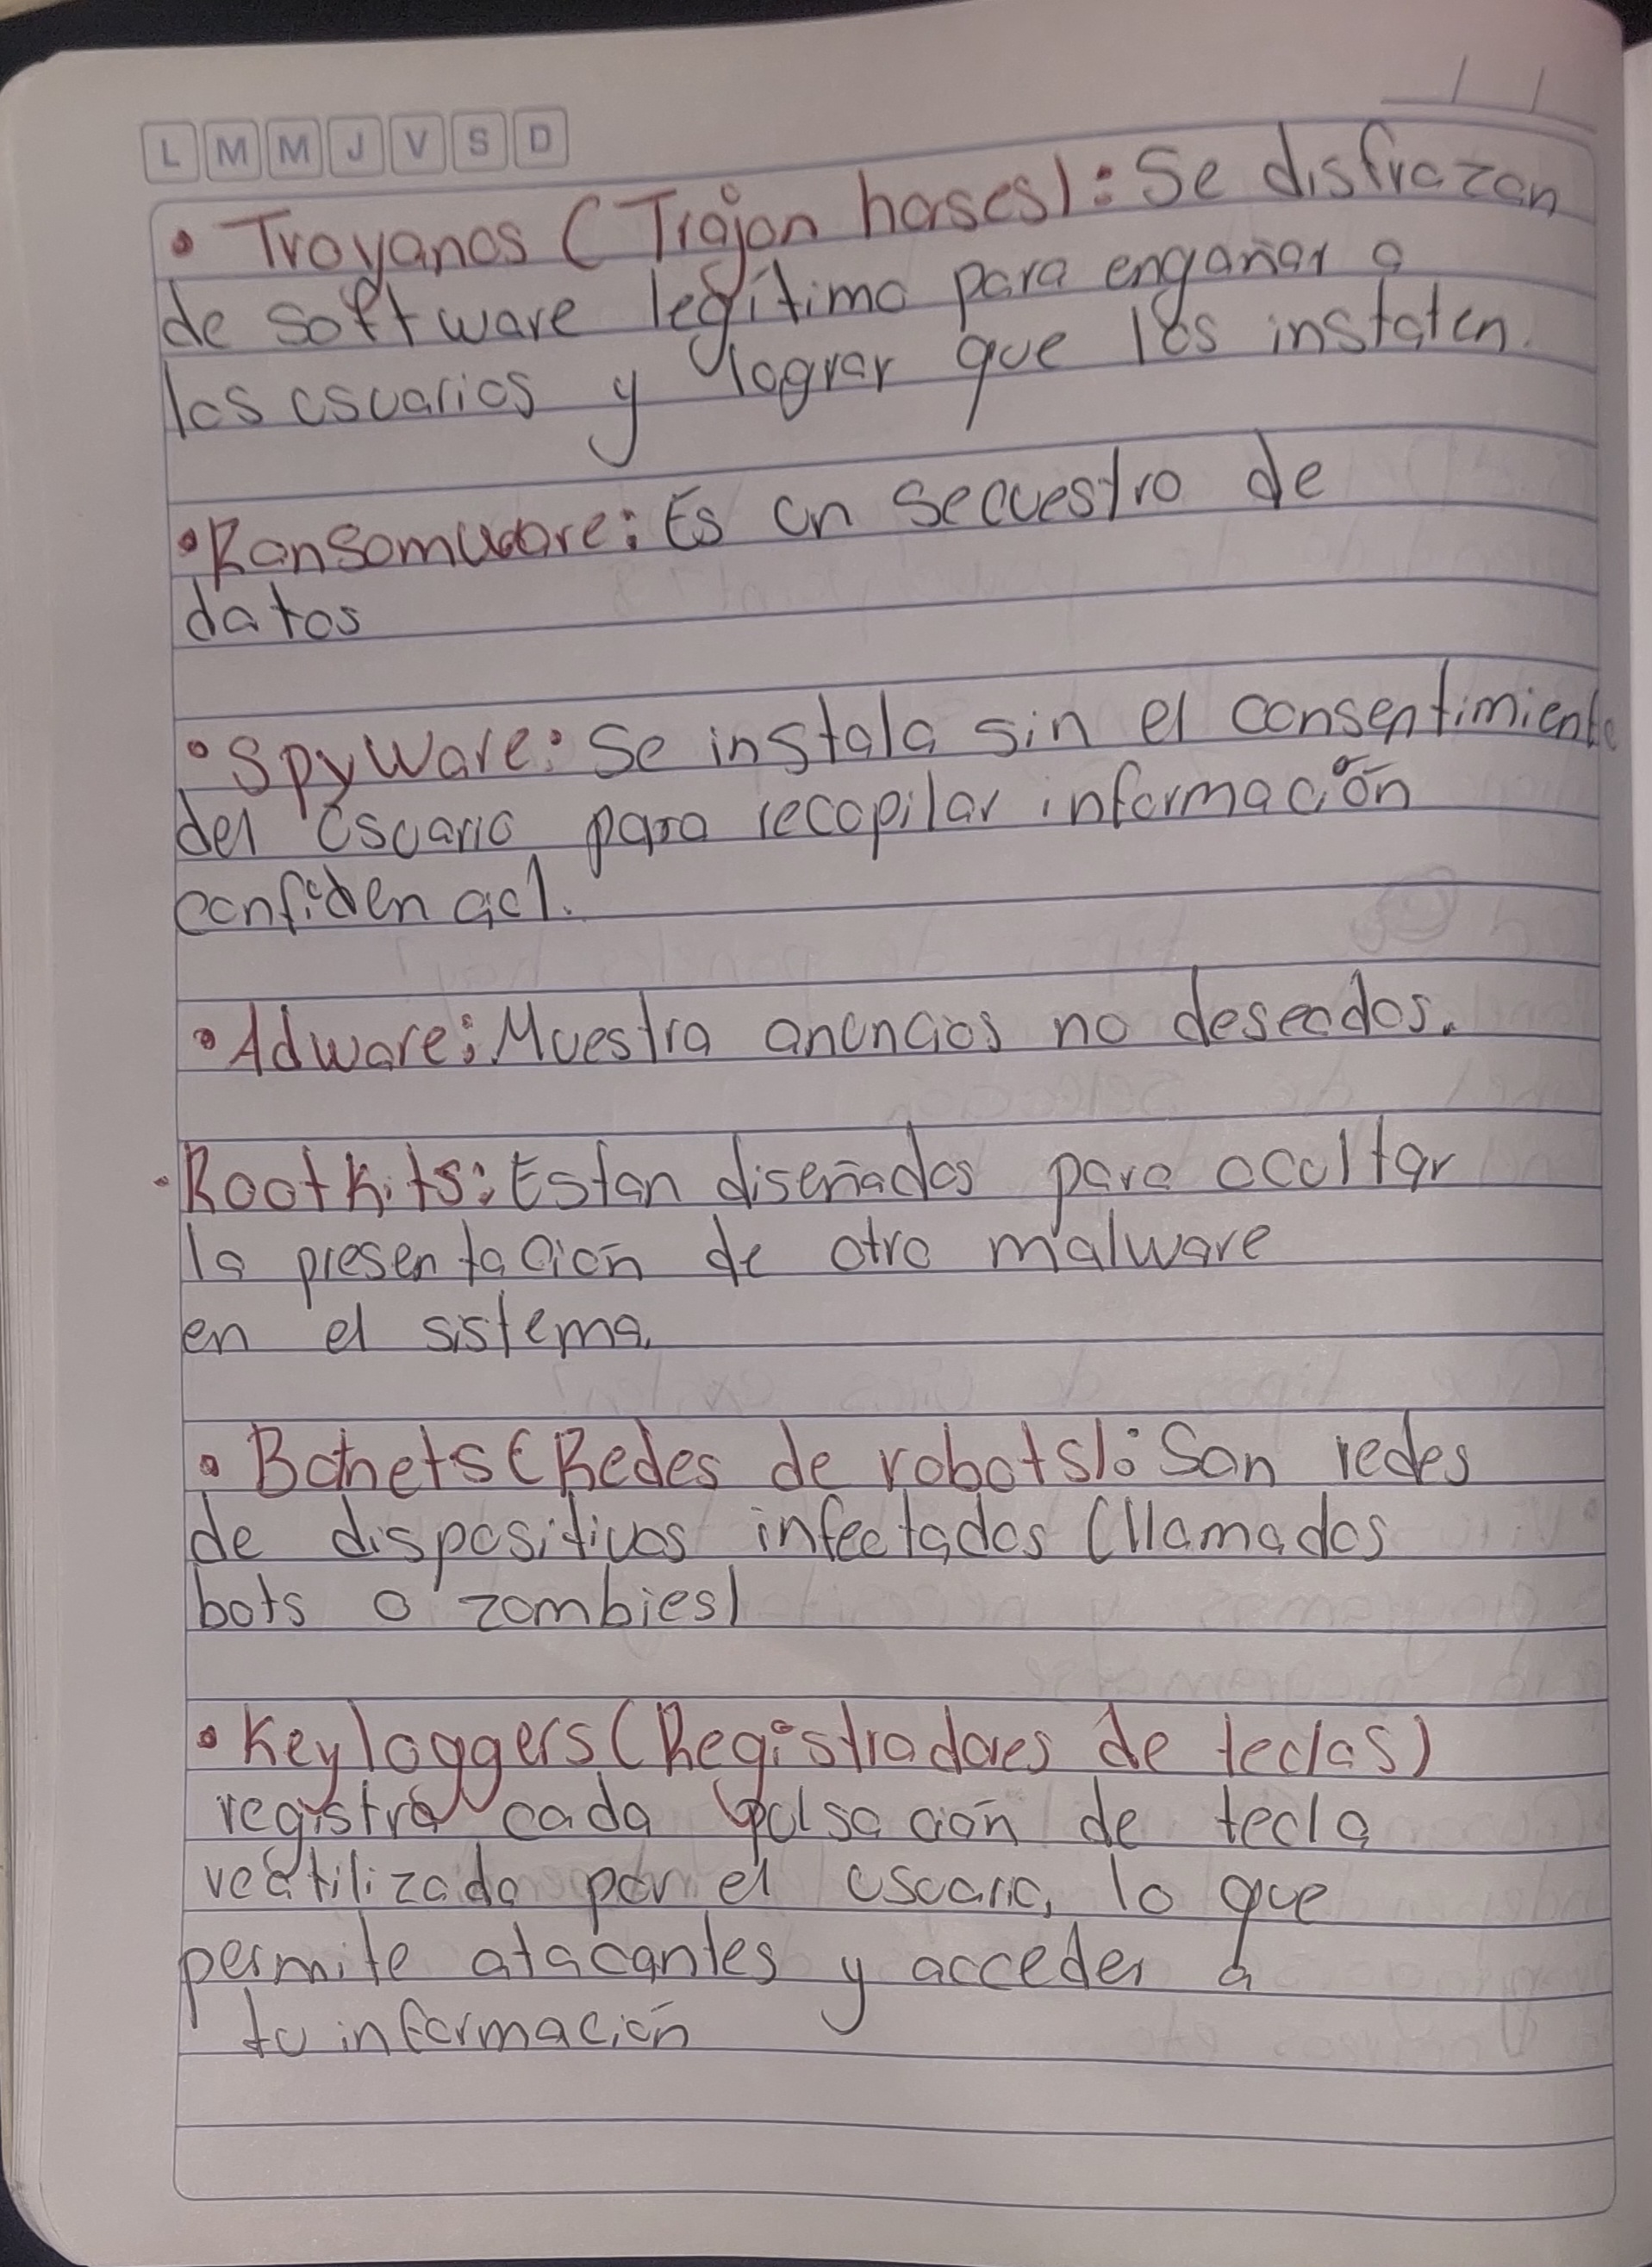 L M M J V S D
• Troyanos (Trojan horses): Se disfrazan
de software legítimo para engañar a
los usuarios y lograr que los instalen.
• Ransomware: Es un secuestro de
datos
• Spyware: Se instala sin el consentimiento
del usuario para recopilar información
confidencial.
• Adware: Muestra anuncios no deseados.
• Rootkits: Estan diseñados para ocultar
la presentación de otro malware
en el sistema.
• Botnets (Redes de robots): Son redes
de dispositivos infectados (llamados
bots o zombies)
• Keyloggers (Registradores de teclas)
registra cada pulsación de tecla
por el usuario, lo que
permite atacantes y acceder a
tu información